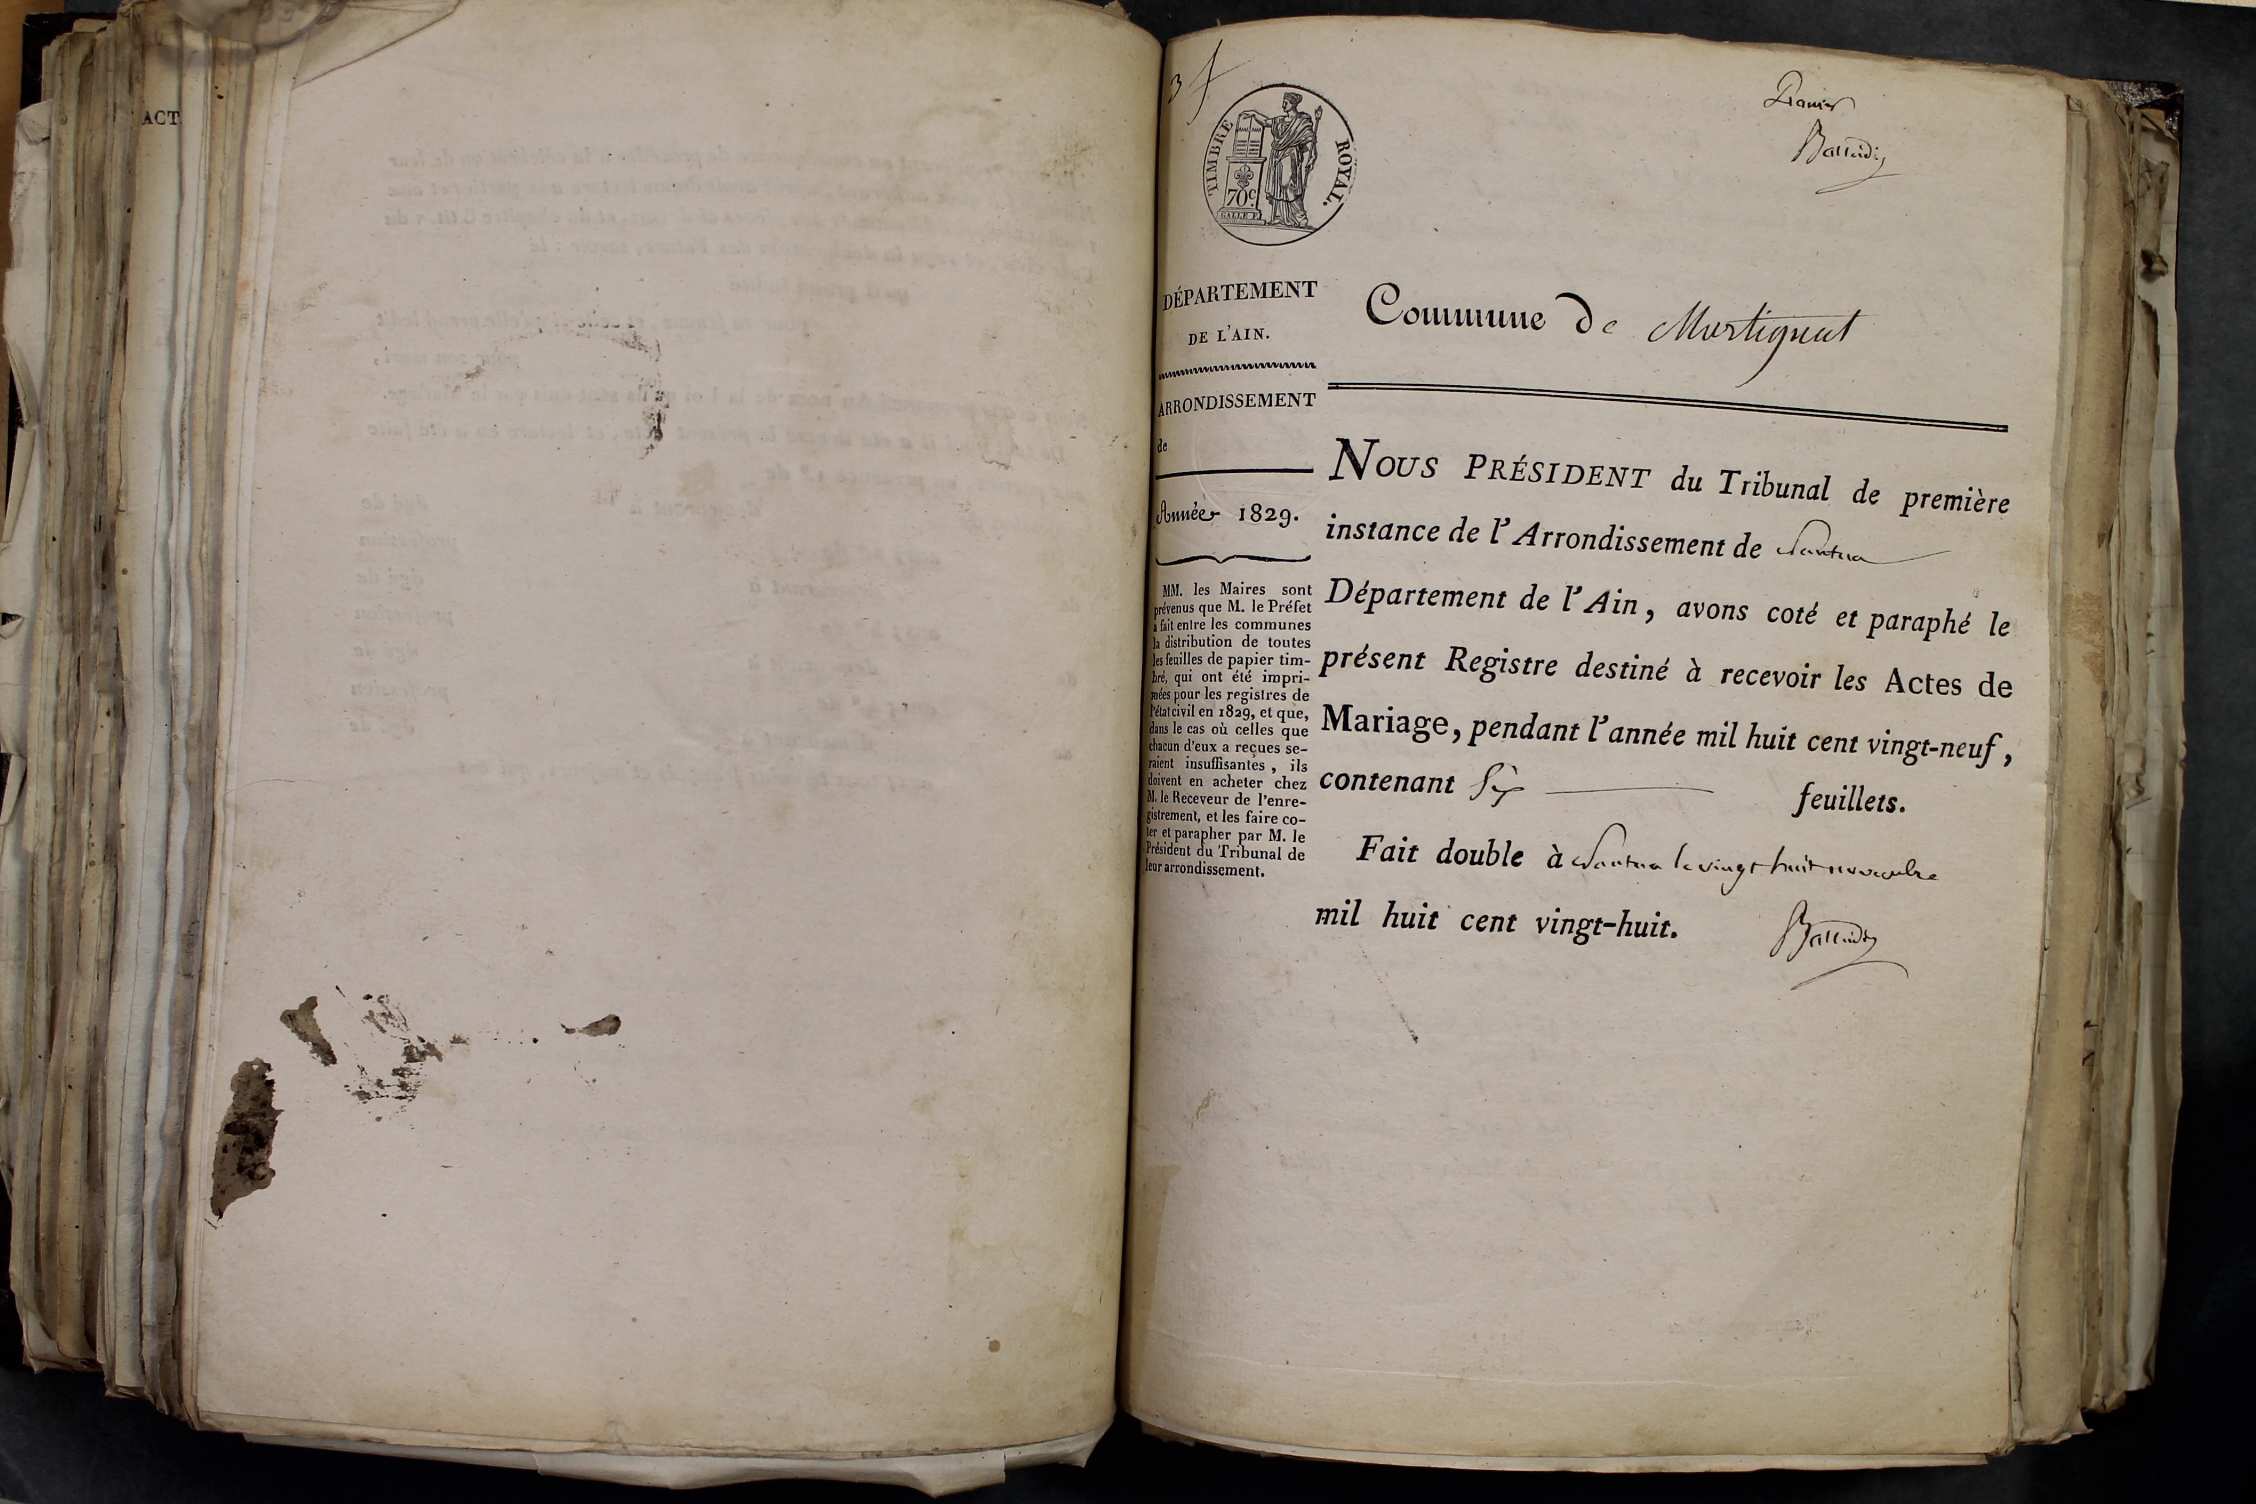 ACT
3f
Premier
TIMBRE ROYAL.
70c.
DÉPARTEMENT
DE L'AIN.
ARRONDISSEMENT
de
Année 1829.
MM. les Maires sont
prévenus que M. le Préfet
a fait entre les communes
la distribution de toutes
les feuilles de papier tim-
bré, qui ont été impri-
mées pour les registres de
l'état civil en 1829, et que,
dans le cas où celles que
chacun d'eux a reçues se-
raient insuffisantes, ils
doivent en acheter chez
M. le Receveur de l'enre-
gistrement, et les faire co-
ter et parapher par M. le
Président du Tribunal de
leur arrondissement.
Commune de Martignat
NOUS PRÉSIDENT du Tribunal de première
instance de l'Arrondissement de Nantua
Département de l'Ain, avons coté et paraphé le
présent Registre destiné à recevoir les Actes de
Mariage, pendant l'année mil huit cent vingt-neuf,
contenant Six feuillets.
Fait double à Nantua le vingt huit novembre
mil huit cent vingt-huit.